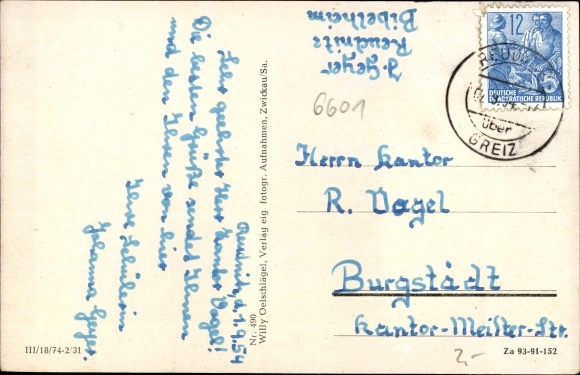 Reudnitz, d. 1.9.54
Sehr geehrter Herr Kantor Vogel!
Die besten Grüße sendet Ihnen
und den Ihren von hier
Ihre Schülerin
Johanna Geyer.
Nr. 490
Willy Oelschlägel, Verlag eig fotogr. Aufnahmen, Zwickau/Sa.
J. Geyer
Reudnitz
Bibelheim
6601
12
DEUTSCHE
DEMOKRATISCHE REPUBLIK
über
GREIZ
Herrn Kantor
R. Vogel
Burgstädt
Kantor-Meister-Str.
2,-
III/18/74-2/31
Za 93-91-152